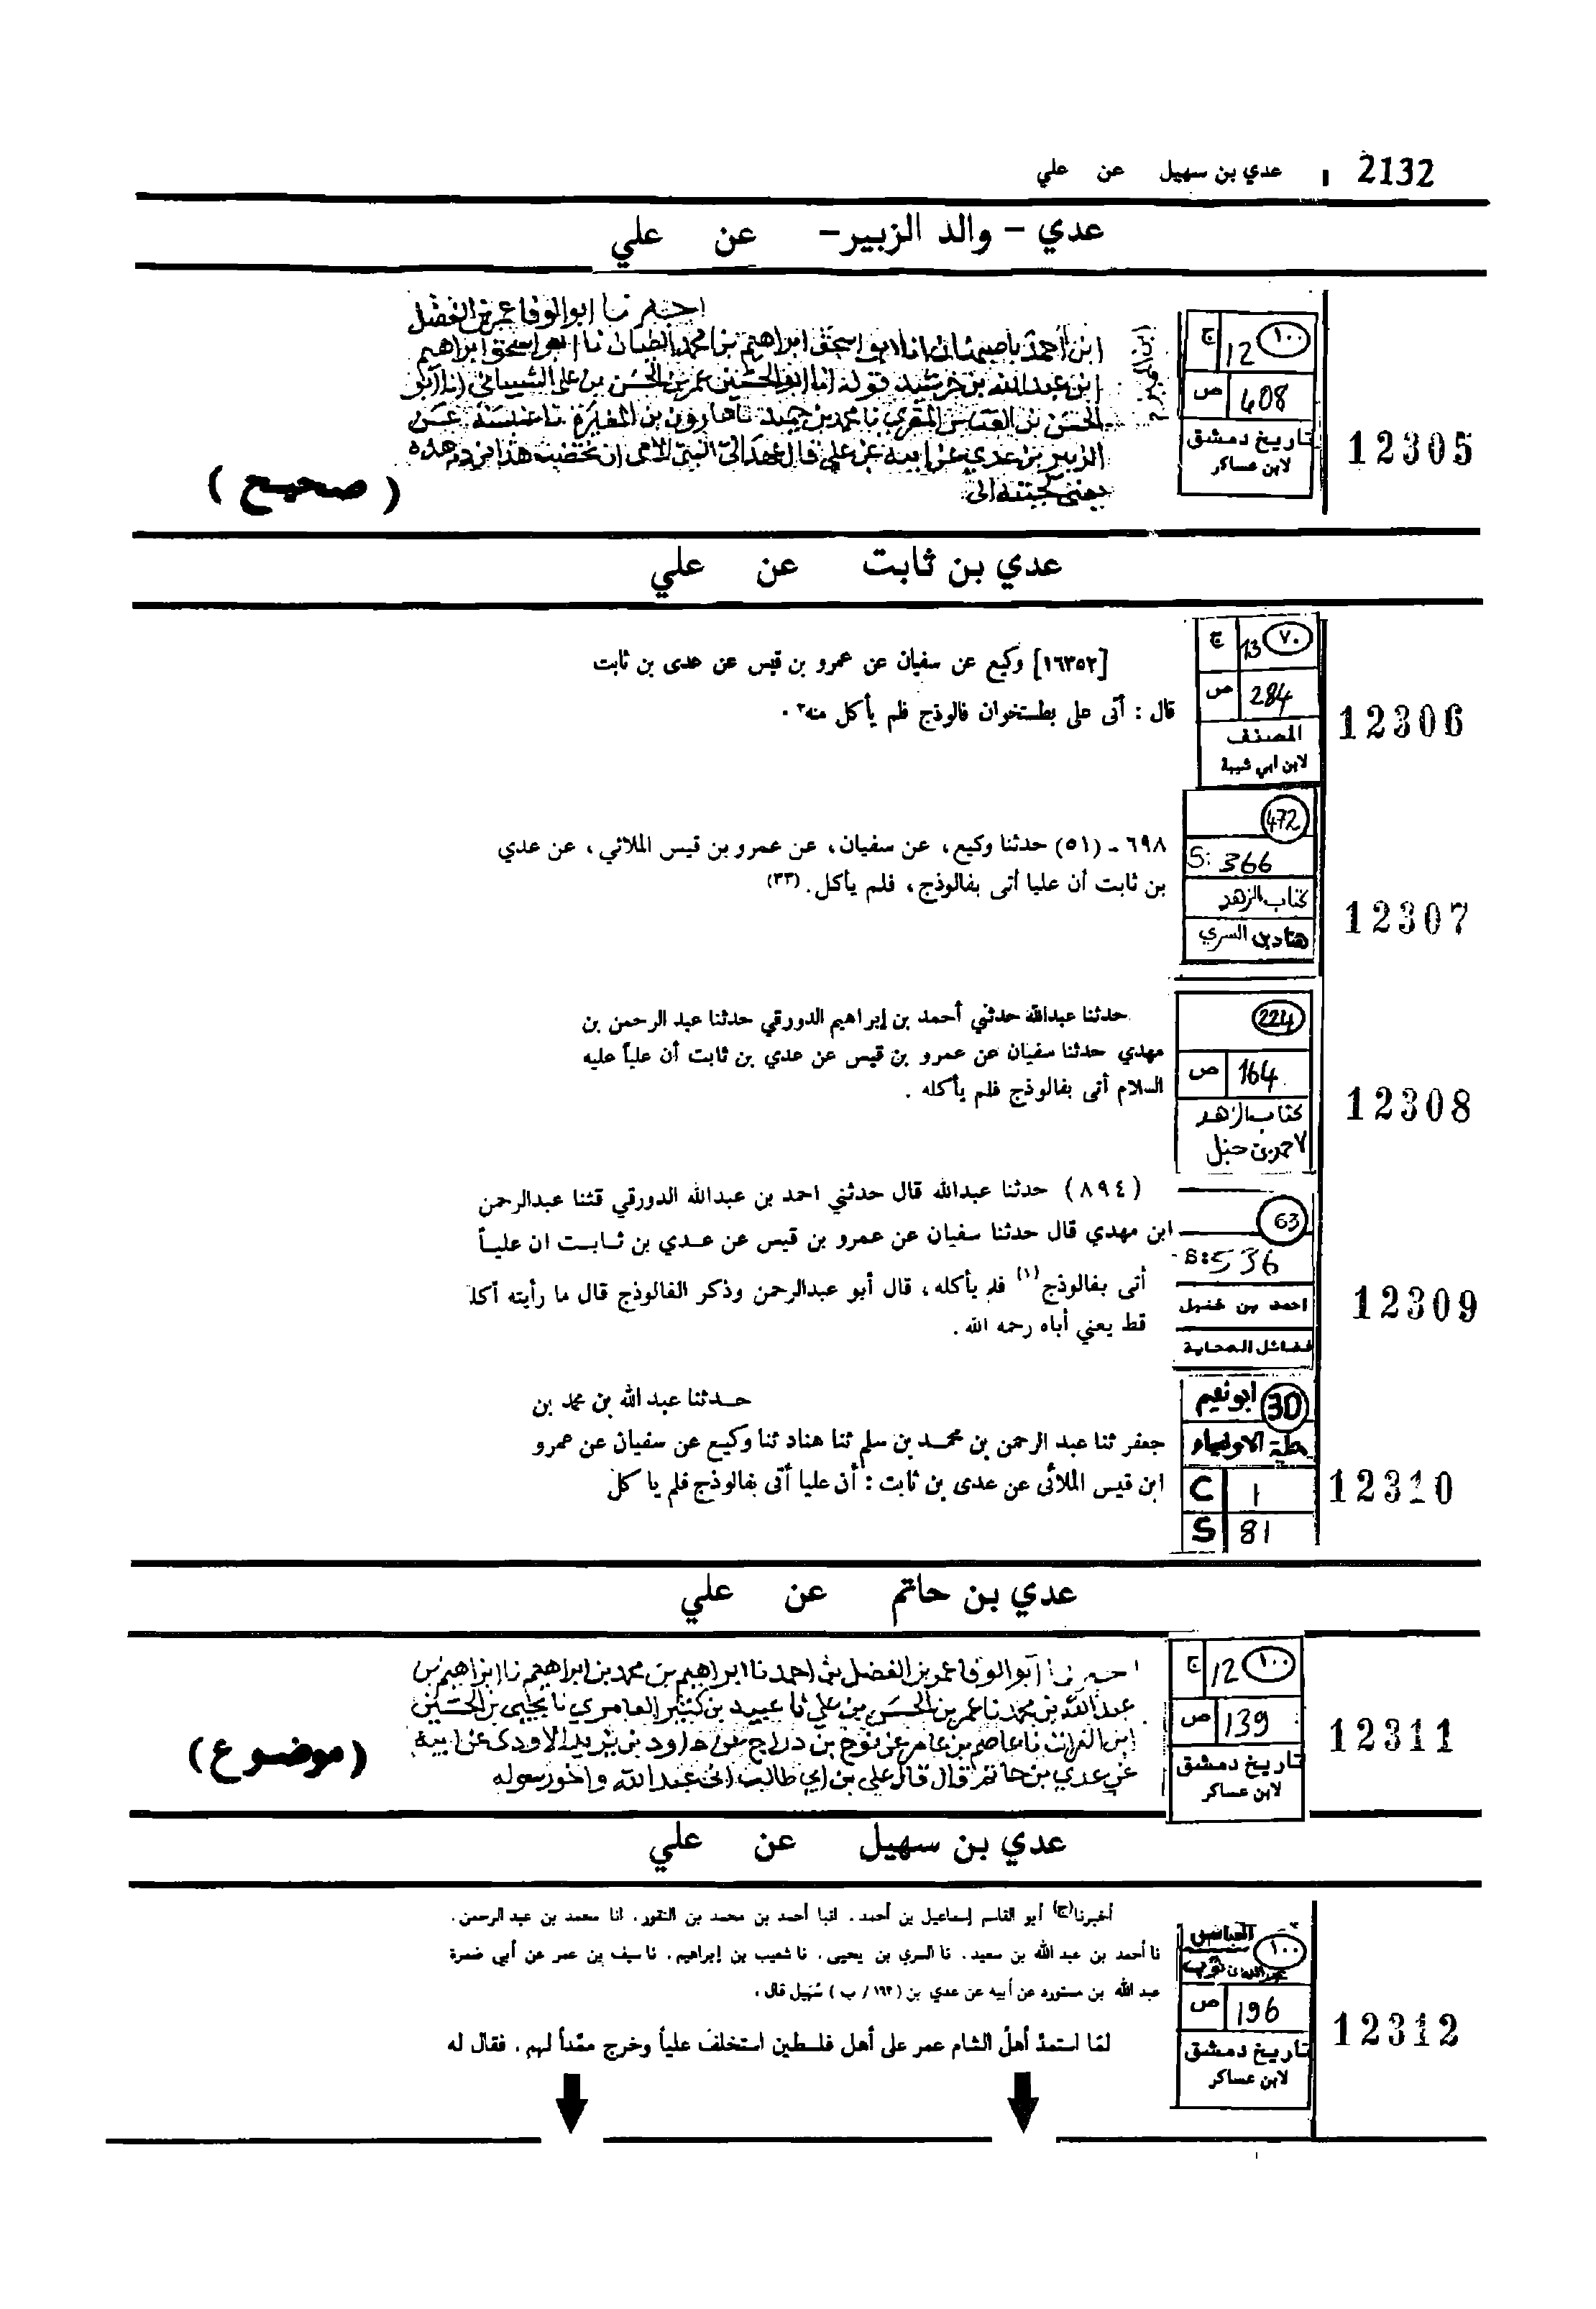 2132 ا عدي بن سهيل عن علي
عدي - والد الزبير - عن علي
اخبرنا ابو الوفا عمر بن الفضل
ابن احمد باصبهان انا ابو اسحق ابراهيم بن محمد الطيان نا ابو اسحق ابراهيم
ابن عبد الله بن خرشيد قوله انا ابو الحسين عمر بن الحسن بن علي الشيباني
الحسن بن العباس المقري نا محمد بن حميد نا هارون بن المغيرة نا عنبسة عن
الزبير بن عدي عن ابيه عن علي قال عهد الي النبي الامي ان تخضب هذه من هذه
يعني لحيته
١٠٠ 12 ج
408 ص
تاريخ دمشق
لابن عساكر
12305
( صحيح )
عدي بن ثابت عن علي
٧٠ 13 ج
284 ص
المصنف
لابن ابي شيبة
12306
[١٦٣٥٢] وكيع عن سفيان عن عمرو بن قيس عن عدى بن ثابت
قال : أتى على بطستخوان فالوذج فلم يأكل منه٢ .
472
S: 366
كتاب الزهد
هناد بن السري
12307
٦٩٨ - (٥١) حدثنا وكيع، عن سفيان، عن عمرو بن قيس الملائي، عن عدي
بن ثابت أن عليا أتى بفالوذج، فلم يأكل. (٣٣)
224
164 ص
كتاب الزهد
لاحمد بن حنبل
12308
حدثنا عبدالله حدثني أحمد بن إبراهيم الدورقي حدثنا عبد الرحمن بن
مهدي حدثنا سفيان عن عمرو بن قيس عن عدي بن ثابت أن علياً عليه
السلام أتى بفالوذج فلم يأكله .
63
S: 536
احمد بن حنبل
فضائل الصحابة
12309
(٨٩٤) حدثنا عبدالله قال حدثني احمد بن عبدالله الدورقي قثنا عبدالرحمن
ابن مهدي قال حدثنا سفيان عن عمرو بن قيس عن عدي بن ثابت ان علياً
أتى بفالوذج (١) فلم يأكله، قال أبو عبدالرحمن وذكر الفالوذج قال ما رأيته أكله
قط يعني أباه رحمه الله .
30 ابو نعيم
حلية الاولياء
C 1
S 81
12310
حدثنا عبد الله بن محمد بن
جعفر ثنا عبد الرحمن بن محمد بن سلم ثنا هناد ثنا وكيع عن سفيان عن عمرو
ابن قيس الملائى عن عدى بن ثابت : أن عليا أتى بفالوذج فلم يا كل
عدي بن حاتم عن علي
١٠٠ 12 ج
139 ص
تاريخ دمشق
لابن عساكر
12311
اخبرنا ابو الوفا عمر بن الفضل بن احمد نا ابراهيم بن محمد بن ابراهيم نا ابراهيم بن
عبد الله بن محمد نا عمر بن الحسن بن علي نا عبيد بن كثير العامري نا يحيى بن الحسين
ابن الفرات نا عاصم بن عامر عن نوح بن دراج عن داود بن يزيد الاودي عن ابيه
عن عدي بن حاتم قال قال علي بن ابي طالب اني عبد الله واخو رسوله
(موضوع)
عدي بن سهيل عن علي
١٠٠
196 ص
تاريخ دمشق
لابن عساكر
12312
أخبرنا(ج) أبو القاسم إسماعيل بن أحمد. انبا أحمد بن محمد بن النقور. انا محمد بن عبد الرحمن.
نا أحمد بن عبد الله بن سعيد. نا السري بن يحيى. نا شعيب بن إبراهيم. نا سيف بن عمر عن أبي ضمرة
عبد الله بن مستورد عن أبيه عن عدي بن (١٦٢ / ب ) سُهَيل قال .
لمّا استمدّ أهلُ الشام عمر على أهل فلسطين استخلف علياً وخرج ممّداً لهم. فقال له